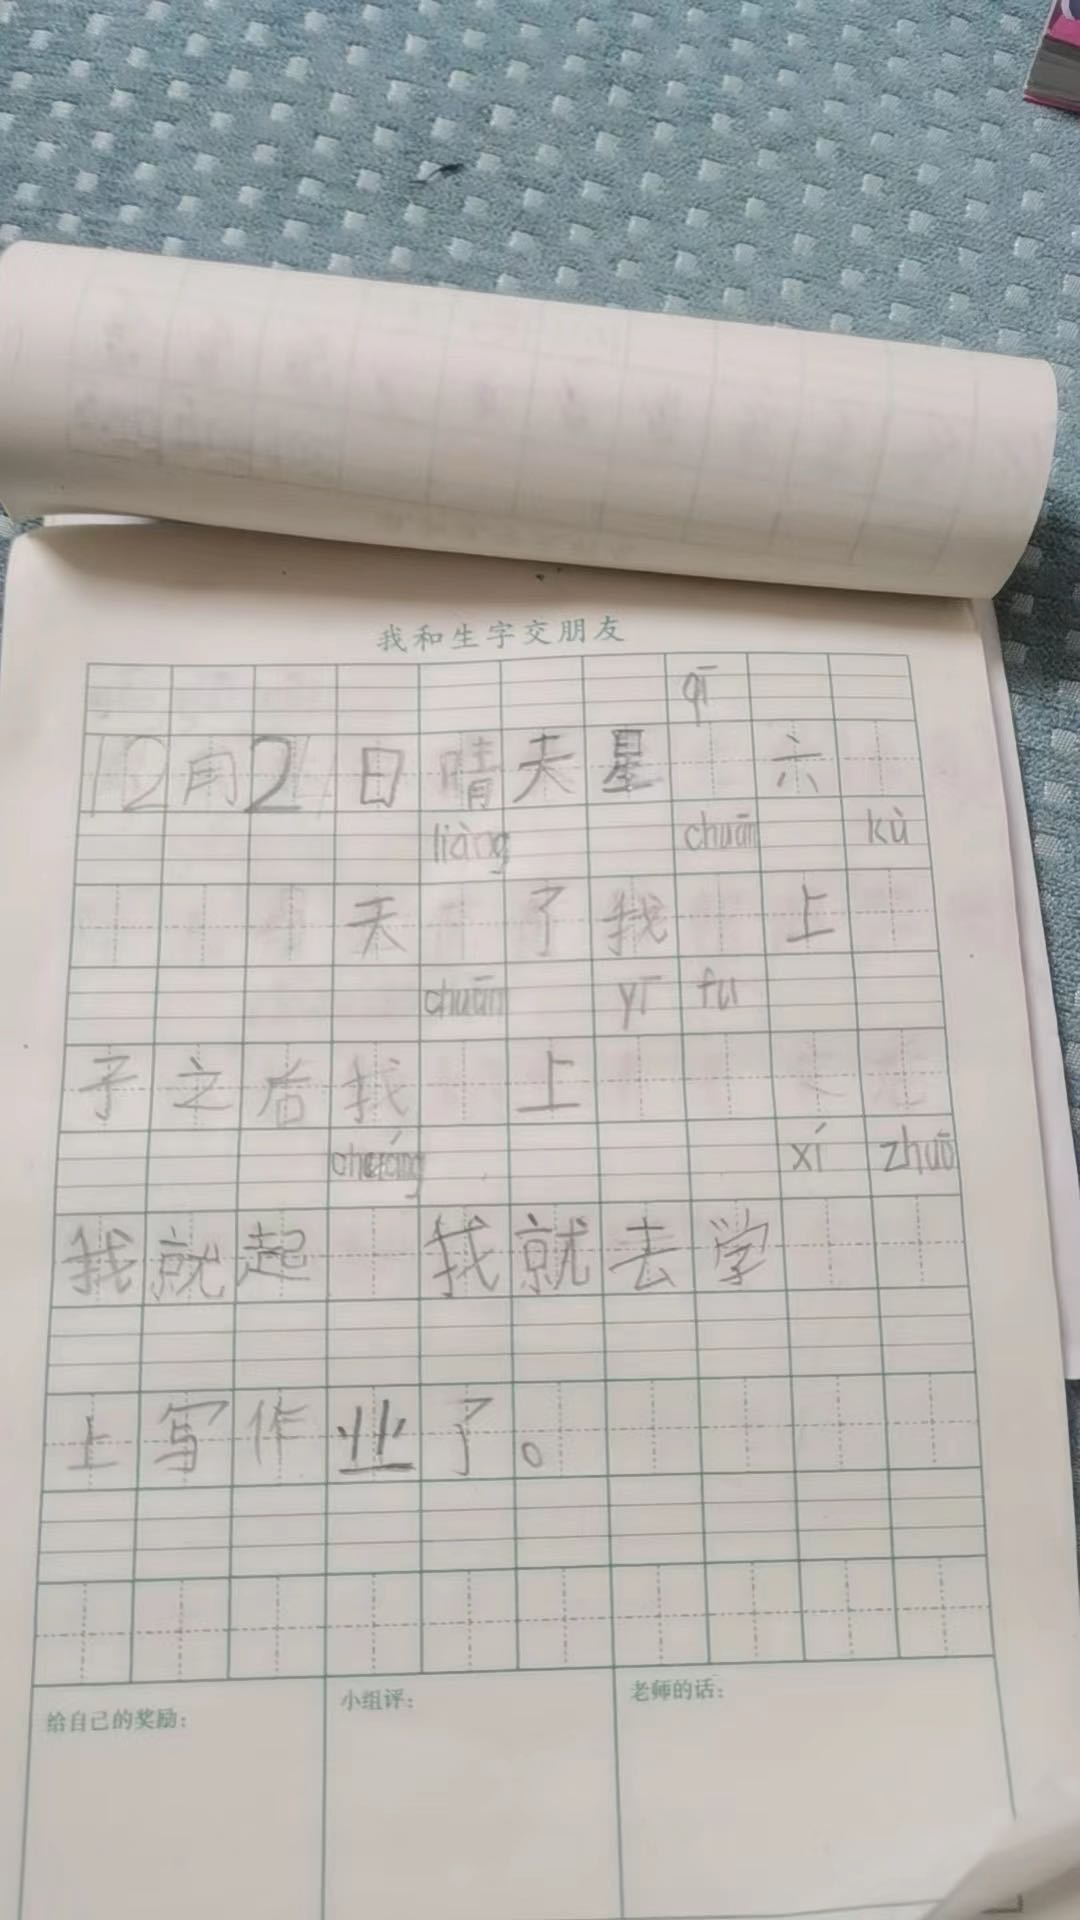 我和生字交朋友
qī
12月2日晴天星 六
liàng chuān kù
天 了我 上
chuān yī fu
子之后我 上
chuáng xí zhuō
我就起 我就去学
上写作业了。
给自己的奖励: 小组评: 老师的话: